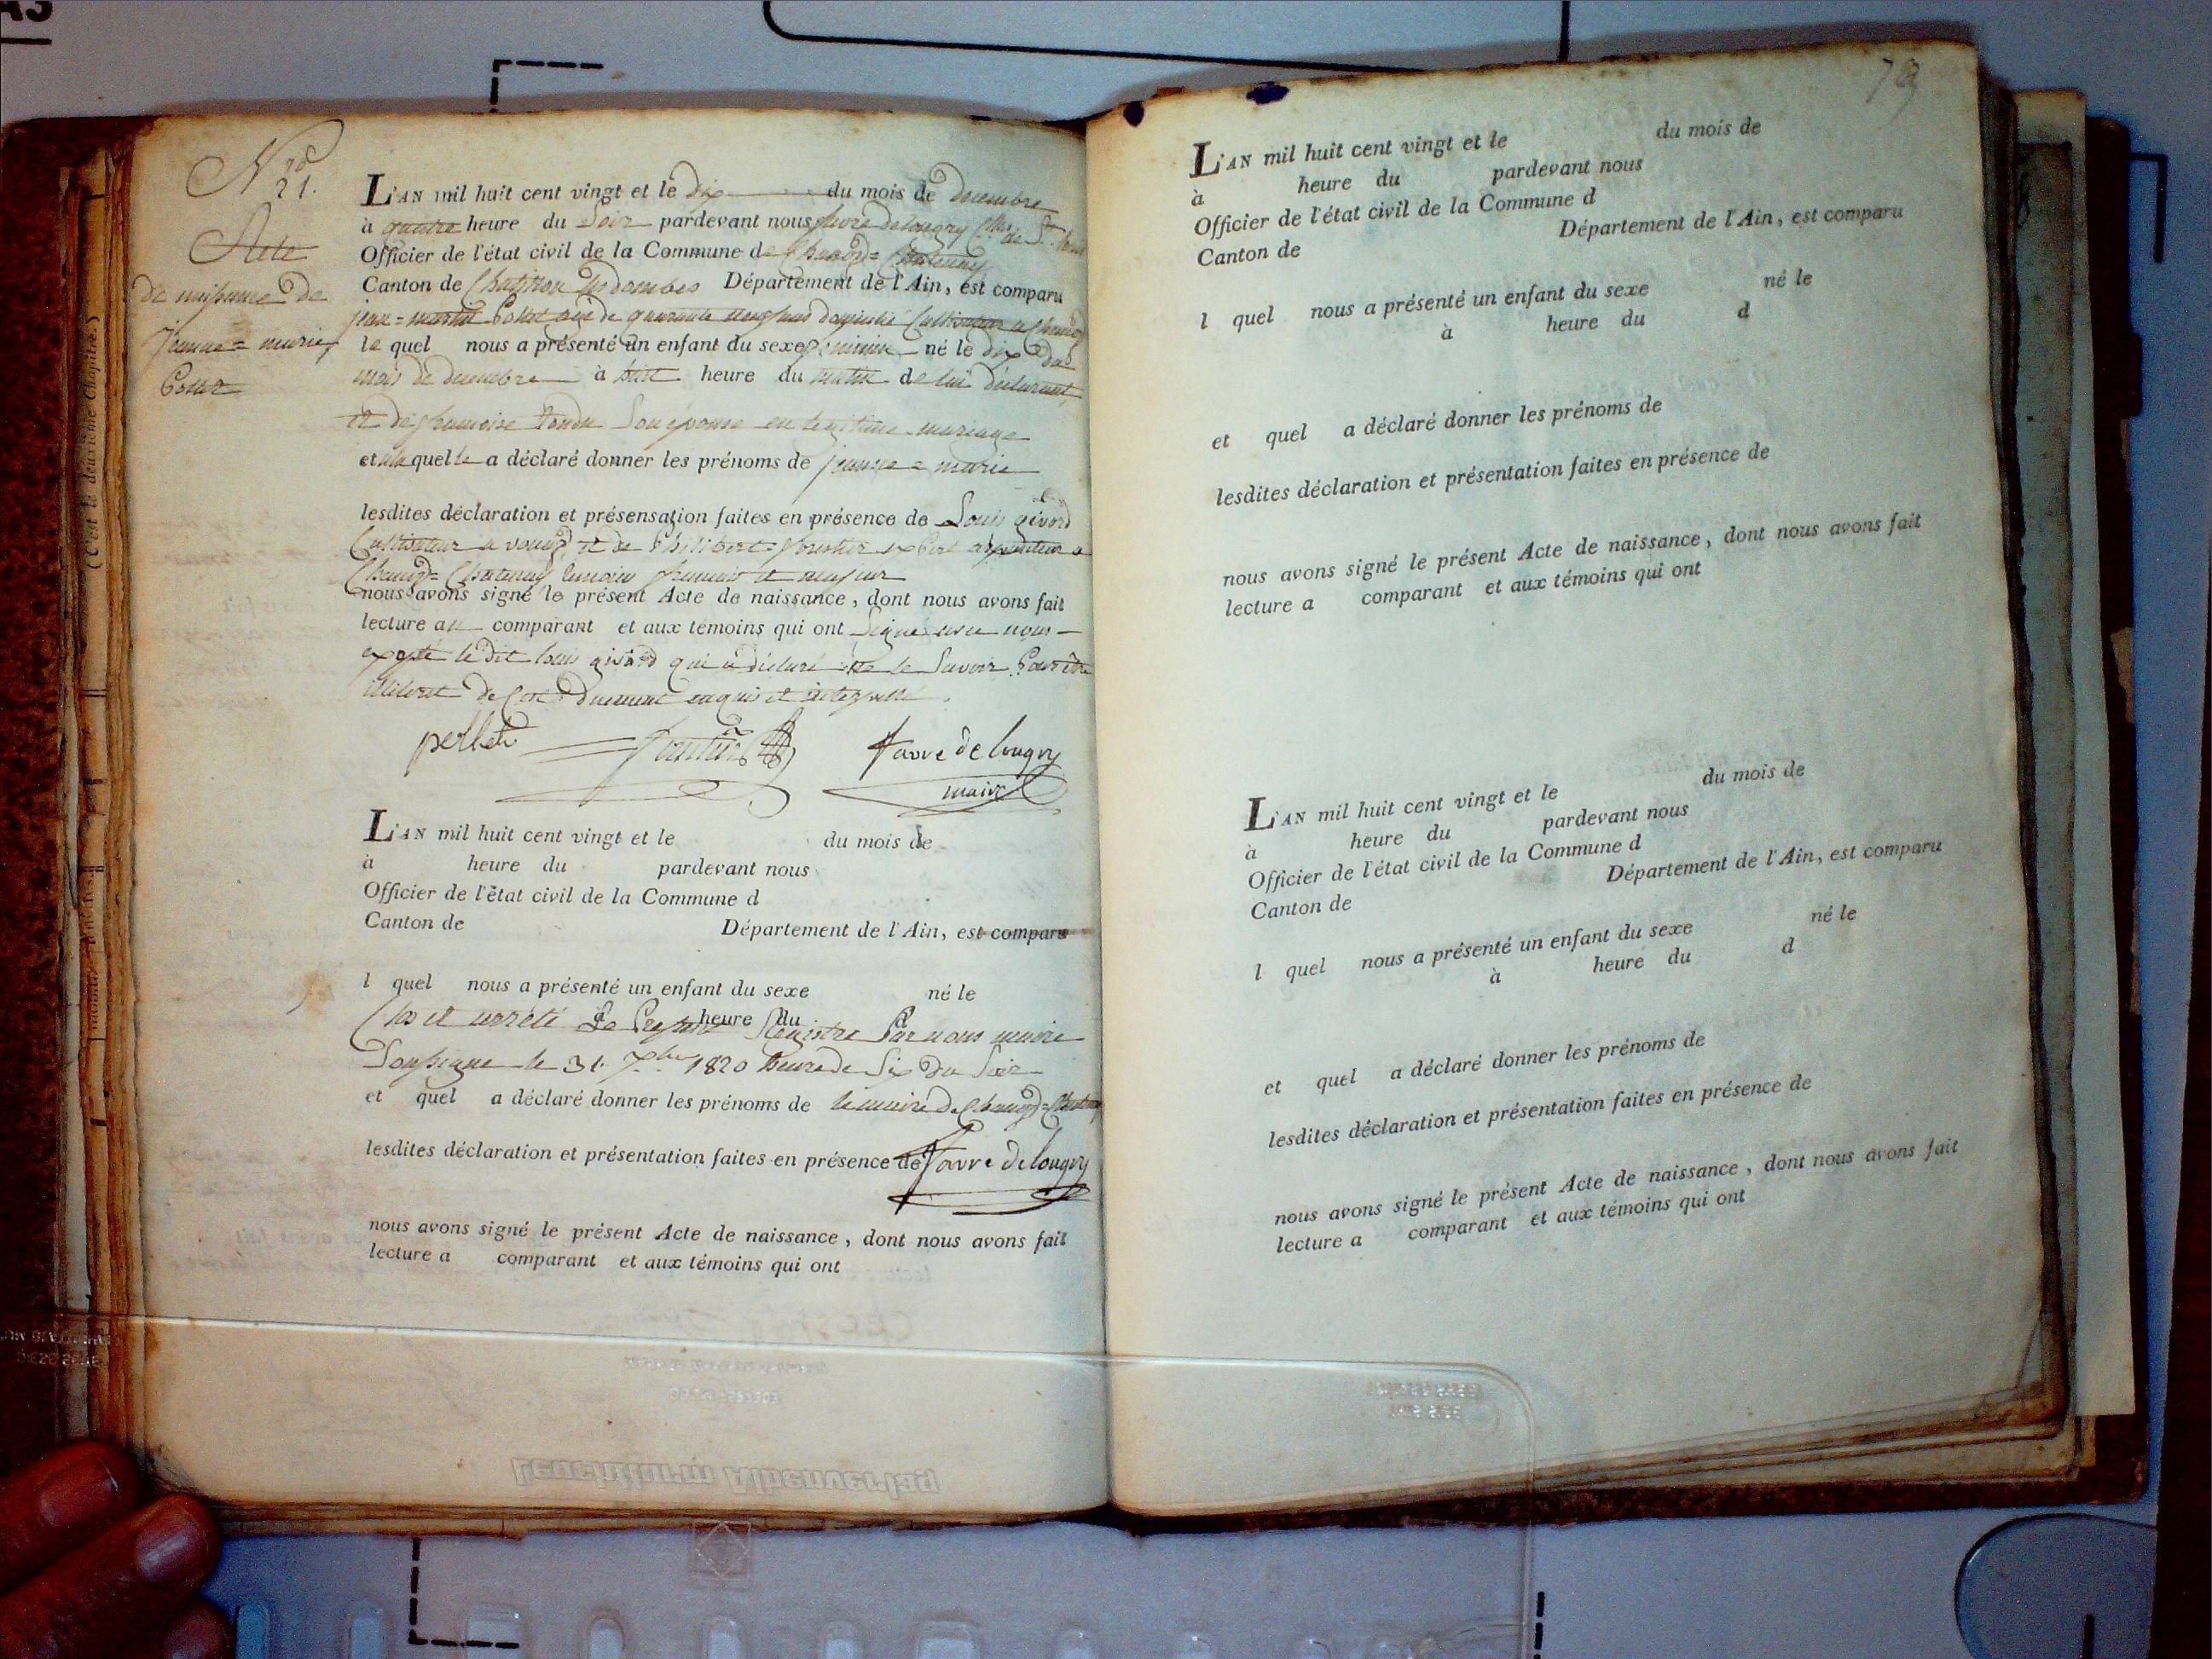 A3
N° 21.
Acte
de naissance de
jeanne = marie
L'AN mil huit cent vingt et le dix du mois de decembre
à quatre heure du Soir pardevant nous favre delongry
Officier de l'état civil de la Commune de Chanoz = Chatenay
Canton de Chatillon les dombes Département de l'Ain, est comparu
jean = marie agé de quarante domicilié Cultivateur a Chanoz
le quel nous a présenté un enfant du sexe feminin né le dix du
mois de decembre à huit heure du matin de lui déclarant
et de françoise Son épouse en legitime mariage
et auquel le a déclaré donner les prénoms de jeanne = marie
lesdites déclaration et présensation faites en présence de Louis givord
Cultivateur a et de Philibert expert arpenteur a
Chanoz = Chatenay temoins français et majeur
nous avons signé le présent Acte de naissance, dont nous avons fait
lecture au comparant et aux témoins qui ont Signé avec nous
excepté le dit louis givord qui a déclaré ne le Savoir Pour être
illiterat de Ce Duement enquis et interpellé.
pellet
favre de longry
maire
L'AN mil huit cent vingt et le du mois de
à heure du pardevant nous
Officier de l'état civil de la Commune d
Canton de Département de l'Ain, est comparu
l quel nous a présenté un enfant du sexe né le
à heure du d
Clos et arrété Le Present Registre Par nous maire
Soussigné le 31. Xbre 1820 heure de Six du Soir
et quel a déclaré donner les prénoms de le maire de Chanoz = Chatenay
lesdites déclaration et présentation faites en présence de favre de longry
nous avons signé le présent Acte de naissance, dont nous avons fait
lecture a comparant et aux témoins qui ont
Leuchtturm Albenverlag
L'AN mil huit cent vingt et le du mois de
à heure du pardevant nous
Officier de l'état civil de la Commune d
Canton de Département de l'Ain, est comparu
l quel nous a présenté un enfant du sexe né le
à heure du d
et quel a déclaré donner les prénoms de
lesdites déclaration et présentation faites en présence de
nous avons signé le présent Acte de naissance, dont nous avons fait
lecture a comparant et aux témoins qui ont
L'AN mil huit cent vingt et le du mois de
à heure du pardevant nous
Officier de l'état civil de la Commune d
Canton de Département de l'Ain, est comparu
l quel nous a présenté un enfant du sexe né le
à heure du d
et quel a déclaré donner les prénoms de
lesdites déclaration et présentation faites en présence de
nous avons signé le présent Acte de naissance, dont nous avons fait
lecture a comparant et aux témoins qui ont